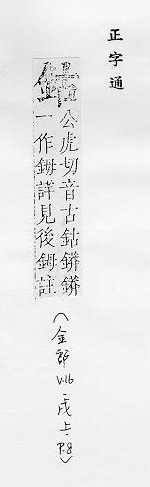 正字通
公虎切音古鈷䥈䥈
一作鉧詳見後鉧註
(金部 V.16 戌上 P.8)